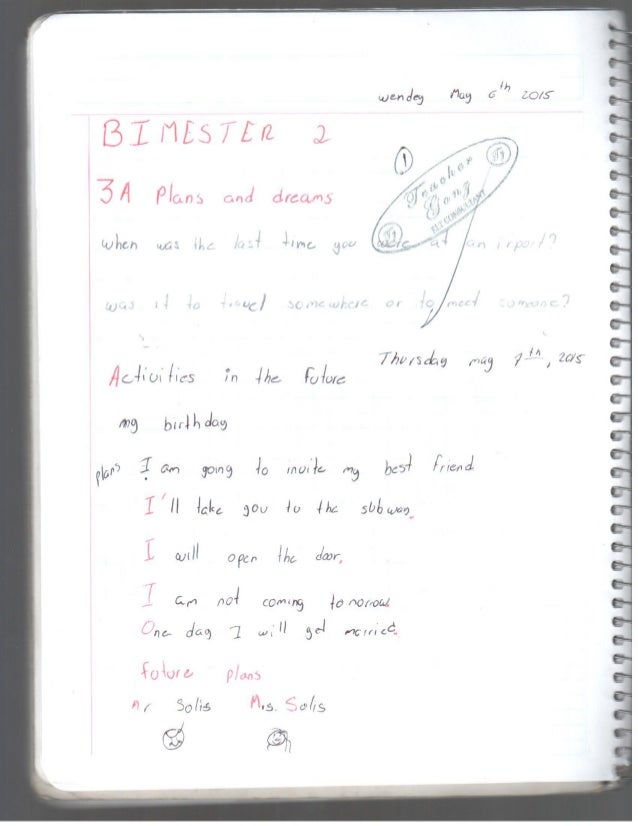 wendey May 6th 2015
BIMESTER 2
1
Teacher
Gonz
ELT CONSULTANT
3A Plans and dreams
when was the last time you were at an irport?
was it to travel somewhere or to meet comeone?
Thursday may 7th, 2015
Activities in the future
my birthday
plans I am going to invite my best friend
I'll take you to the subway.
I will open the door.
I am not coming tomorrow.
One day I will get married.
future plans
Mr Solis M.s. Solis